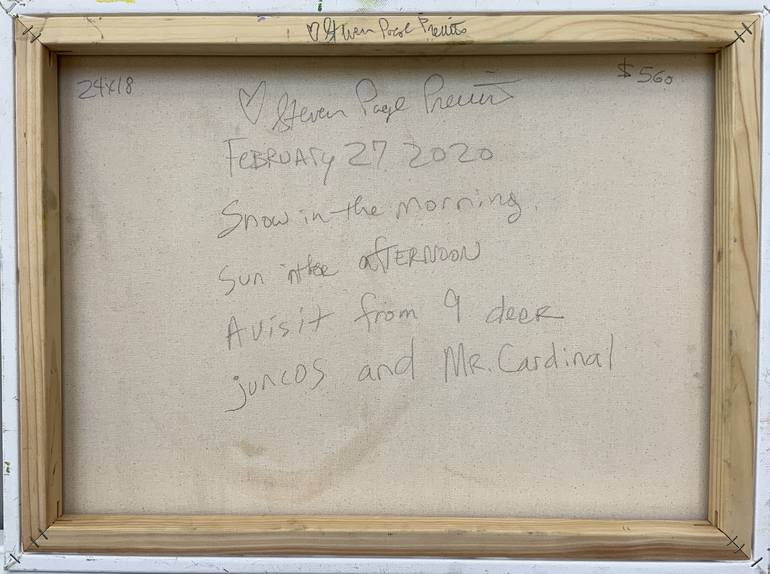 ♡ Steven Page Prewitt
24x18
$560
♡ Steven Page Prewitt
FEBRUARY 27 2020
Snow in the morning.
Sun in the aFTERNOON
A visit from 9 deer
juncos and MR. Cardinal